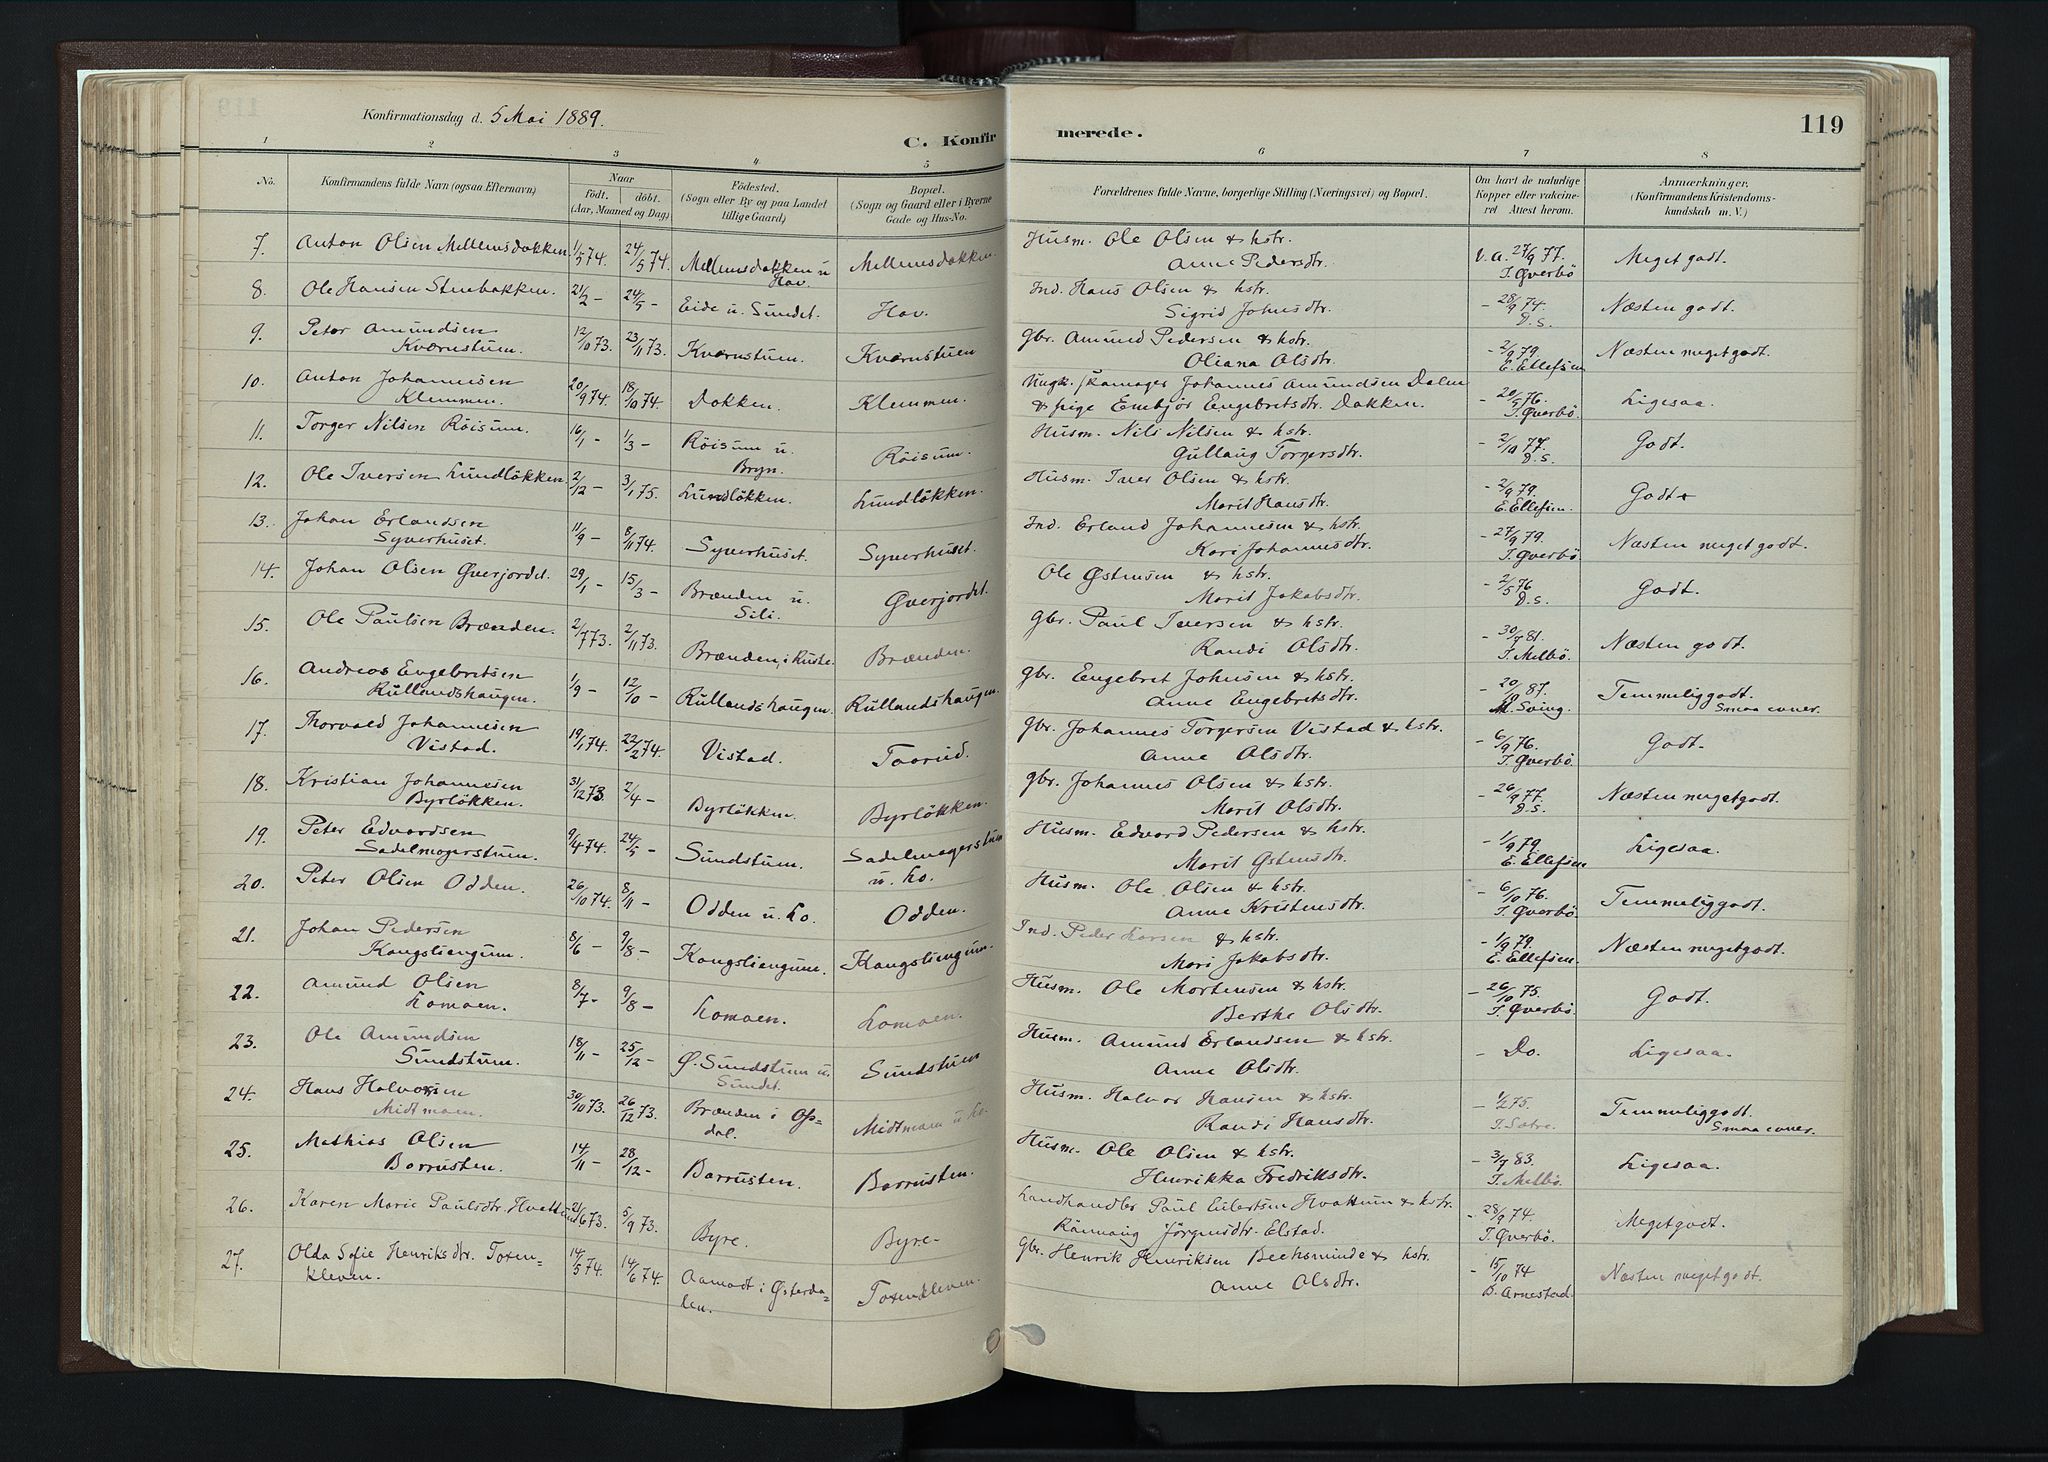 Konfirmationsdag d. 5 Mai 1889.
C. Konfirmerede.
119
1 2 3 4 5 6 7 8
No. Konfirmandens fulde Navn (ogsaa Efternavn) Naar födt. döbt. (Aar, Maaned og Dag) Födested. (Sogn eller By og paa Landet tillige Gaard) Bopæl. (Sogn og Gaard eller i Byerne Gade og Hus-No. Forældrenes fulde Navne, borgerlige Stilling (Næringsvei) og Bopæl. Om havt de naturlige Kopper eller vakcineret Attest herom. Anmærkninger. (Konfirmandens Kristendomskundskab m. V.)
7. Anton Olsen Mellemsdokken. 1/5 74. 24/5 74. Mellemsdokken u Hov. Mellemsdokken. Husm. Ole Olsen & hstr. Anne Pedersdtr. v. a. 27/9 77. T. Øverbö Meget godt.
8. Ole Hansen Stenbakken. 21/2 - 24/5 - Eide u. Sundet. Hov. Ind. Hans Olsen & hstr. Sigrid Johnsdtr. - 28/9 74. D. S. Næsten godt.
9. Peter Amundsen Kværnstuen. 12/10 73. 23/11 73. Kværnstuen. Kværnstuen Gbr. Amund Pedersen & hstr. Oliana Olsdtr. - 2/9 79. E. Ellefsen Næsten meget godt.
10. Anton Johannesen Klemmen. 20/9 74. 18/10 74. Dokken. Klemmen. Ungk. skomager Johannes Amundsen Dalen & pige Embjör Engebretsdtr. Dokken. - 20/5 76. T. Øverbö. Ligesaa.
11. Torger Nilsen Röisum. 16/1 - 1/3 - Röisum u. Bryn. Röisum. Husm. Nils Nilsen & hstr. Gullaug Torgersdtr. - 2/10 77. D. S. Godt.
12. Ole Iversen Lundlökken 2/12 - 3/1 75. Lundlökken. Lundlökken. Husm. Iver Olsen & hstr. Marit Hansdtr. - 2/9 79. E. Ellefsen. Godt
13. Johan Erlandsen Syverhuset. 11/9 - 8/11 74. Syverhuset. Syverhuset. Ind. Erland Johannesen & hstr. Kari Johannesdtr. - 27/9 79. T. Øverbö. Næsten meget godt.
14. Johan Olsen Øverjordet. 29/1 - 15/3 - Brænden u. Sili. Øverjordet. Ole Østensen & hstr. Marit Jakobsdtr. - 2/5 76 D. S. Godt.
15. Ole Paulsen Brænden. 2/7 73. 2/11 73. Brænden, i Ruste. Brænden. Gbr. Paul Iversen & hstr. Randi Olsdtr. - 30/9 81. T. Melbö. Næsten godt.
16. Andreas Engebretsen Rullandshaugen. 1/9 - 12/10 - Rullandshaugen. Rullandshaugen. Gbr. Engebret Johnsen & hstr. Anne Engebretsdtr. - 20/10 87. M. Sving. Temmelig godt. Smaa evner.
17. Thorvald Johannesen Vistad. 19/1 74. 22/2 74. Vistad. Taarud. Gbr. Johannes Torgersen Vistad & hstr. Anne Olsdtr. - 6/9 76. T. Øverbö. Godt.
18. Kristian Johannesen Byrlökken. 31/12 73. 2/4 - Byrlökken. Byrlökken. Gbr. Johannes Olsen & hstr. Marit Olsdtr. - 26/9 77. D. S. Næsten meget godt.
19. Peter Edvardsen Sadelmagerstuen. 9/4 74. 24/5 - Sundstuen. Sadelmagerstuen u. Lo. Husm. Edvard Pedersen & hstr. Marit Østensdtr. - 1/9 79. E. Ellefsen Ligesaa.
20. Peter Olsen Odden. 26/10 74. 8/11 - Odden u. Lo. Odden. Husm. Ole Olsen & hstr. Anne Kristensdtr. - 6/10 76. T. Øverbö. Temmelig godt.
21. Johan Pedersen Kongsliengum. 8/6 - 9/8 - Kongsliengum. Kongsliengum. Ind. Peder Larsen & hstr. Mari Jakobsdtr. - 1/9 79. E. Ellefsen. Næsten meget godt.
22. Amund Olsen Lomoen. 8/7 - 9/8 - Lomoen. Lomoen. Husm. Ole Mortensen & hstr. Berthe Olsdtr. - 26/10 75. T. Øverbö. Godt.
23. Ole Amundsen Sundstuen. 18/11 - 25/12 - Ø. Sundstuen u. Sundet. Sundstuen Husm. Amund Erlandsen & hstr. Anne Olsdtr. - Do. Ligesaa.
24. Hans Halvorsen Midtmoen. 30/10 73. 26/12 73. Brænden i Opdal. Midtmoen u Lo. Husm. Halvor Hansen & hstr. Randi Hansdtr. - 1/2 75. T. Sætre. Temmelig godt. Smaa evner.
25. Mathias Olsen Borrusten. 14/11 - 28/12 - Borrusten. Borrusten. Husm. Ole Olsen & hstr. Henrikka Fredriksdtr. - 3/7 83. T. Melbö. Ligesaa.
26. Karen Marie Paulsdtr. Hvattum 21/6 73. 5/9 73. Byre. Byre- Landhandler Paul Eilertsen Hvattum & hstr. Rännaug Jörgensdtr. Elstad. - 28/9 74. T. Øverbö. Meget godt.
27. Olda Sofie Henriksdtr. Toxenkleven. 14/5 74. 14/6 74. Aamodt i Østerdalen. Toxenkleven. Gbr. Henrik Henriksen Becksminde & hstr. Anne Olsdtr. - 15/10 74 B. Arnestad. Næsten meget godt.